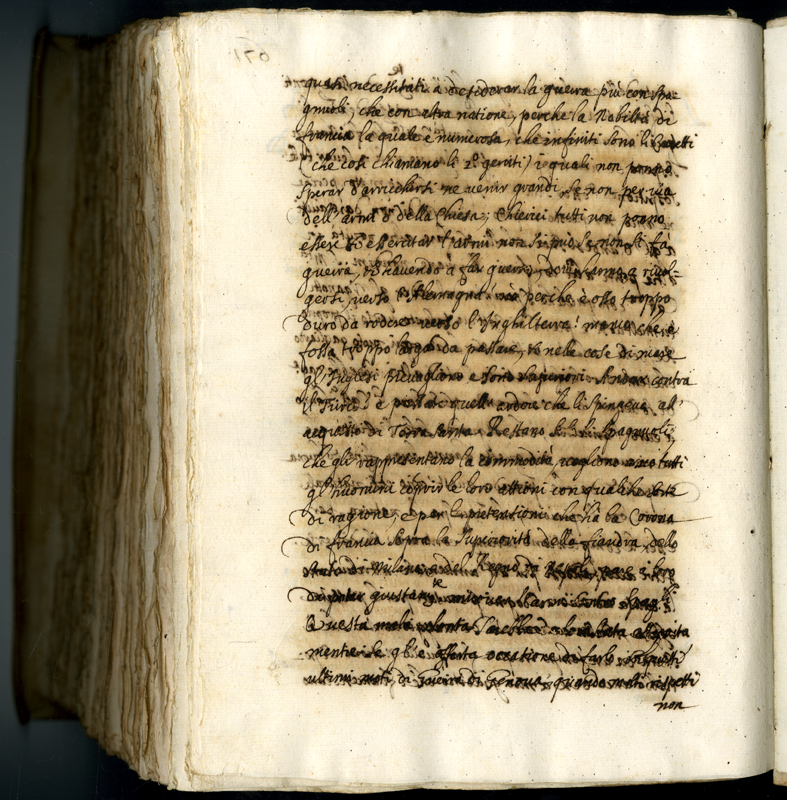 quasi necessitati à desiderar la guerra più con spa=
gnuoli, che con altra natione, perche la Nobiltà di
francia la quale è numerosa, che infiniti sono li Cadetti
(che così chiamano li 2.i geniti) i quali non ponno
sperar d'arricchirsi ne venir grandi, se non per via
dell'armi ò della Chiesa; Chierici tutti non ponno
essere et essercitar l'armi non si può se non si fà
guerra, et havendo à far guerra, dove hanno a rivol=
gersi, verso perche è osso troppo
duro da rodere verso l'Inghilterra?
fossa troppo larga da passare, et nelle cose di mare
gl'Inglesi prevagliono e sono superiori. Andar contra
il Turco? è quell' ardore che li spingeva all'
acquisto di Terra Santa. Restano li Spagnuoli,
che gli rappresentano la commodità, vogliono tutti
gl'huomini coprir le loro attioni con qualche sorte
di ragione, e per le pretensioni che hà la Corona
di francia sopra la superiorità della fiandra, dello
stato di Milano e del Regno di
giusta
Questa mala volontà
mente se gl'è offerta occasione di farlo
ultimi moti di guerra di Genova, quando molti rispetti
non